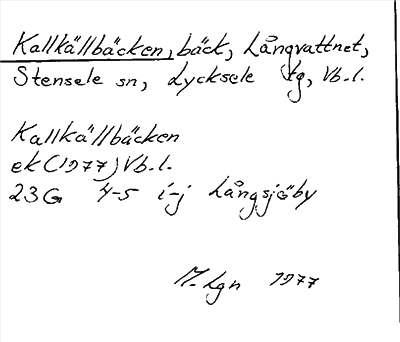 Kallkällbäcken, bäck, Långvattnet,
Stensele sn, Lycksele tg, Vb.l.
Kallkällbäcken
ek (1977) Vb.l.
23G 4-5 i-j Långsjöby
M-Lgn 1977